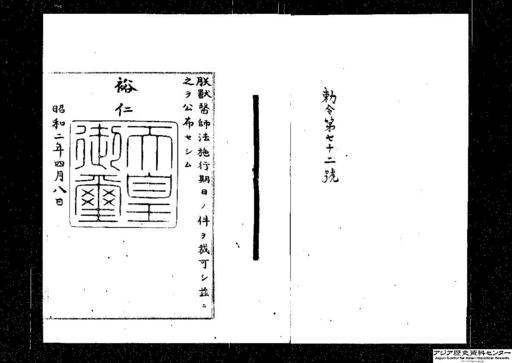 勅令第七十二號
朕獸醫師法施行期日ノ件ヲ裁可シ茲ニ
之ヲ公布セシム
裕仁
天皇
御璽
昭和二年四月八日
アジア歴史資料センター
Japan Center for Asian Historical Records